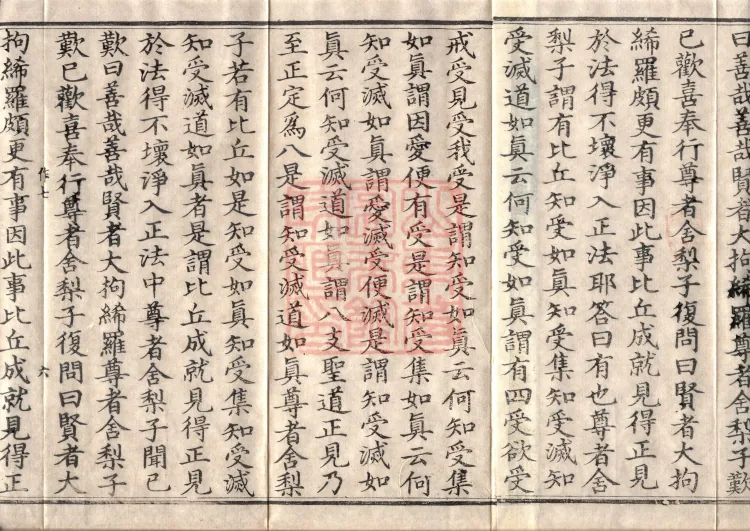 曰善哉善哉賢者大拘絺羅尊者舍梨子歎
已歡喜奉行尊者舍梨子復問曰賢者大拘
絺羅頗更有事因此事比丘成就見得正見
於法得不壞淨入正法耶答曰有也尊者舍
梨子謂有比丘知受如眞知受集知受滅知
受滅道如眞云何知受如眞謂有四受欲受
戒受見受我受是謂知受如眞云何知受集
如眞謂因愛便有受是謂知受集如眞云何
知受滅如眞謂愛滅受便滅是謂知受滅如
眞云何知受滅道如眞謂八支聖道正見乃
至正定爲八是謂知受滅道如眞尊者舍梨
子若有比丘如是知受如眞知受集知受滅
知受滅道如眞者是謂比丘成就見得正見
於法得不壞淨入正法中尊者舍梨子聞已
歎曰善哉善哉賢者大拘絺羅尊者舍梨子
歎已歡喜奉行尊者舍梨子復問曰賢者大
作七 六
拘絺羅頗更有事因此事比丘成就見得正